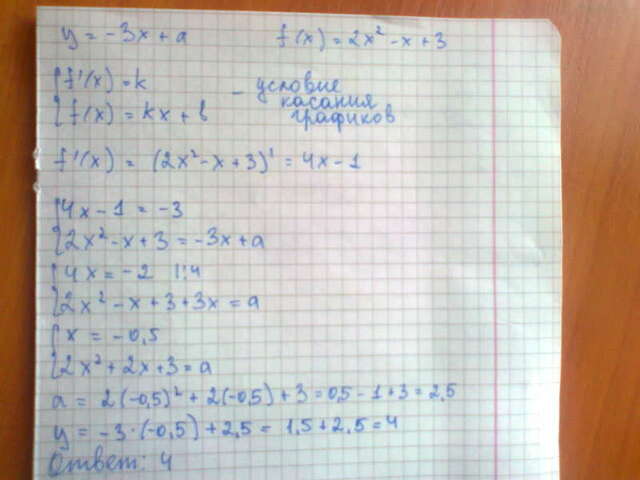 y = -3x + a f(x) = 2x² - x + 3
{ f'(x) = k
{ f(x) = kx + b - условие касания графиков
f'(x) = (2x² - x + 3)' = 4x - 1
{ 4x - 1 = -3
{ 2x² - x + 3 = -3x + a
{ 4x = -2 |:4
{ 2x² - x + 3 + 3x = a
{ x = -0,5
{ 2x² + 2x + 3 = a
a = 2(-0,5)² + 2(-0,5) + 3 = 0,5 - 1 + 3 = 2,5
y = -3·(-0,5) + 2,5 = 1,5 + 2,5 = 4
Ответ: 4